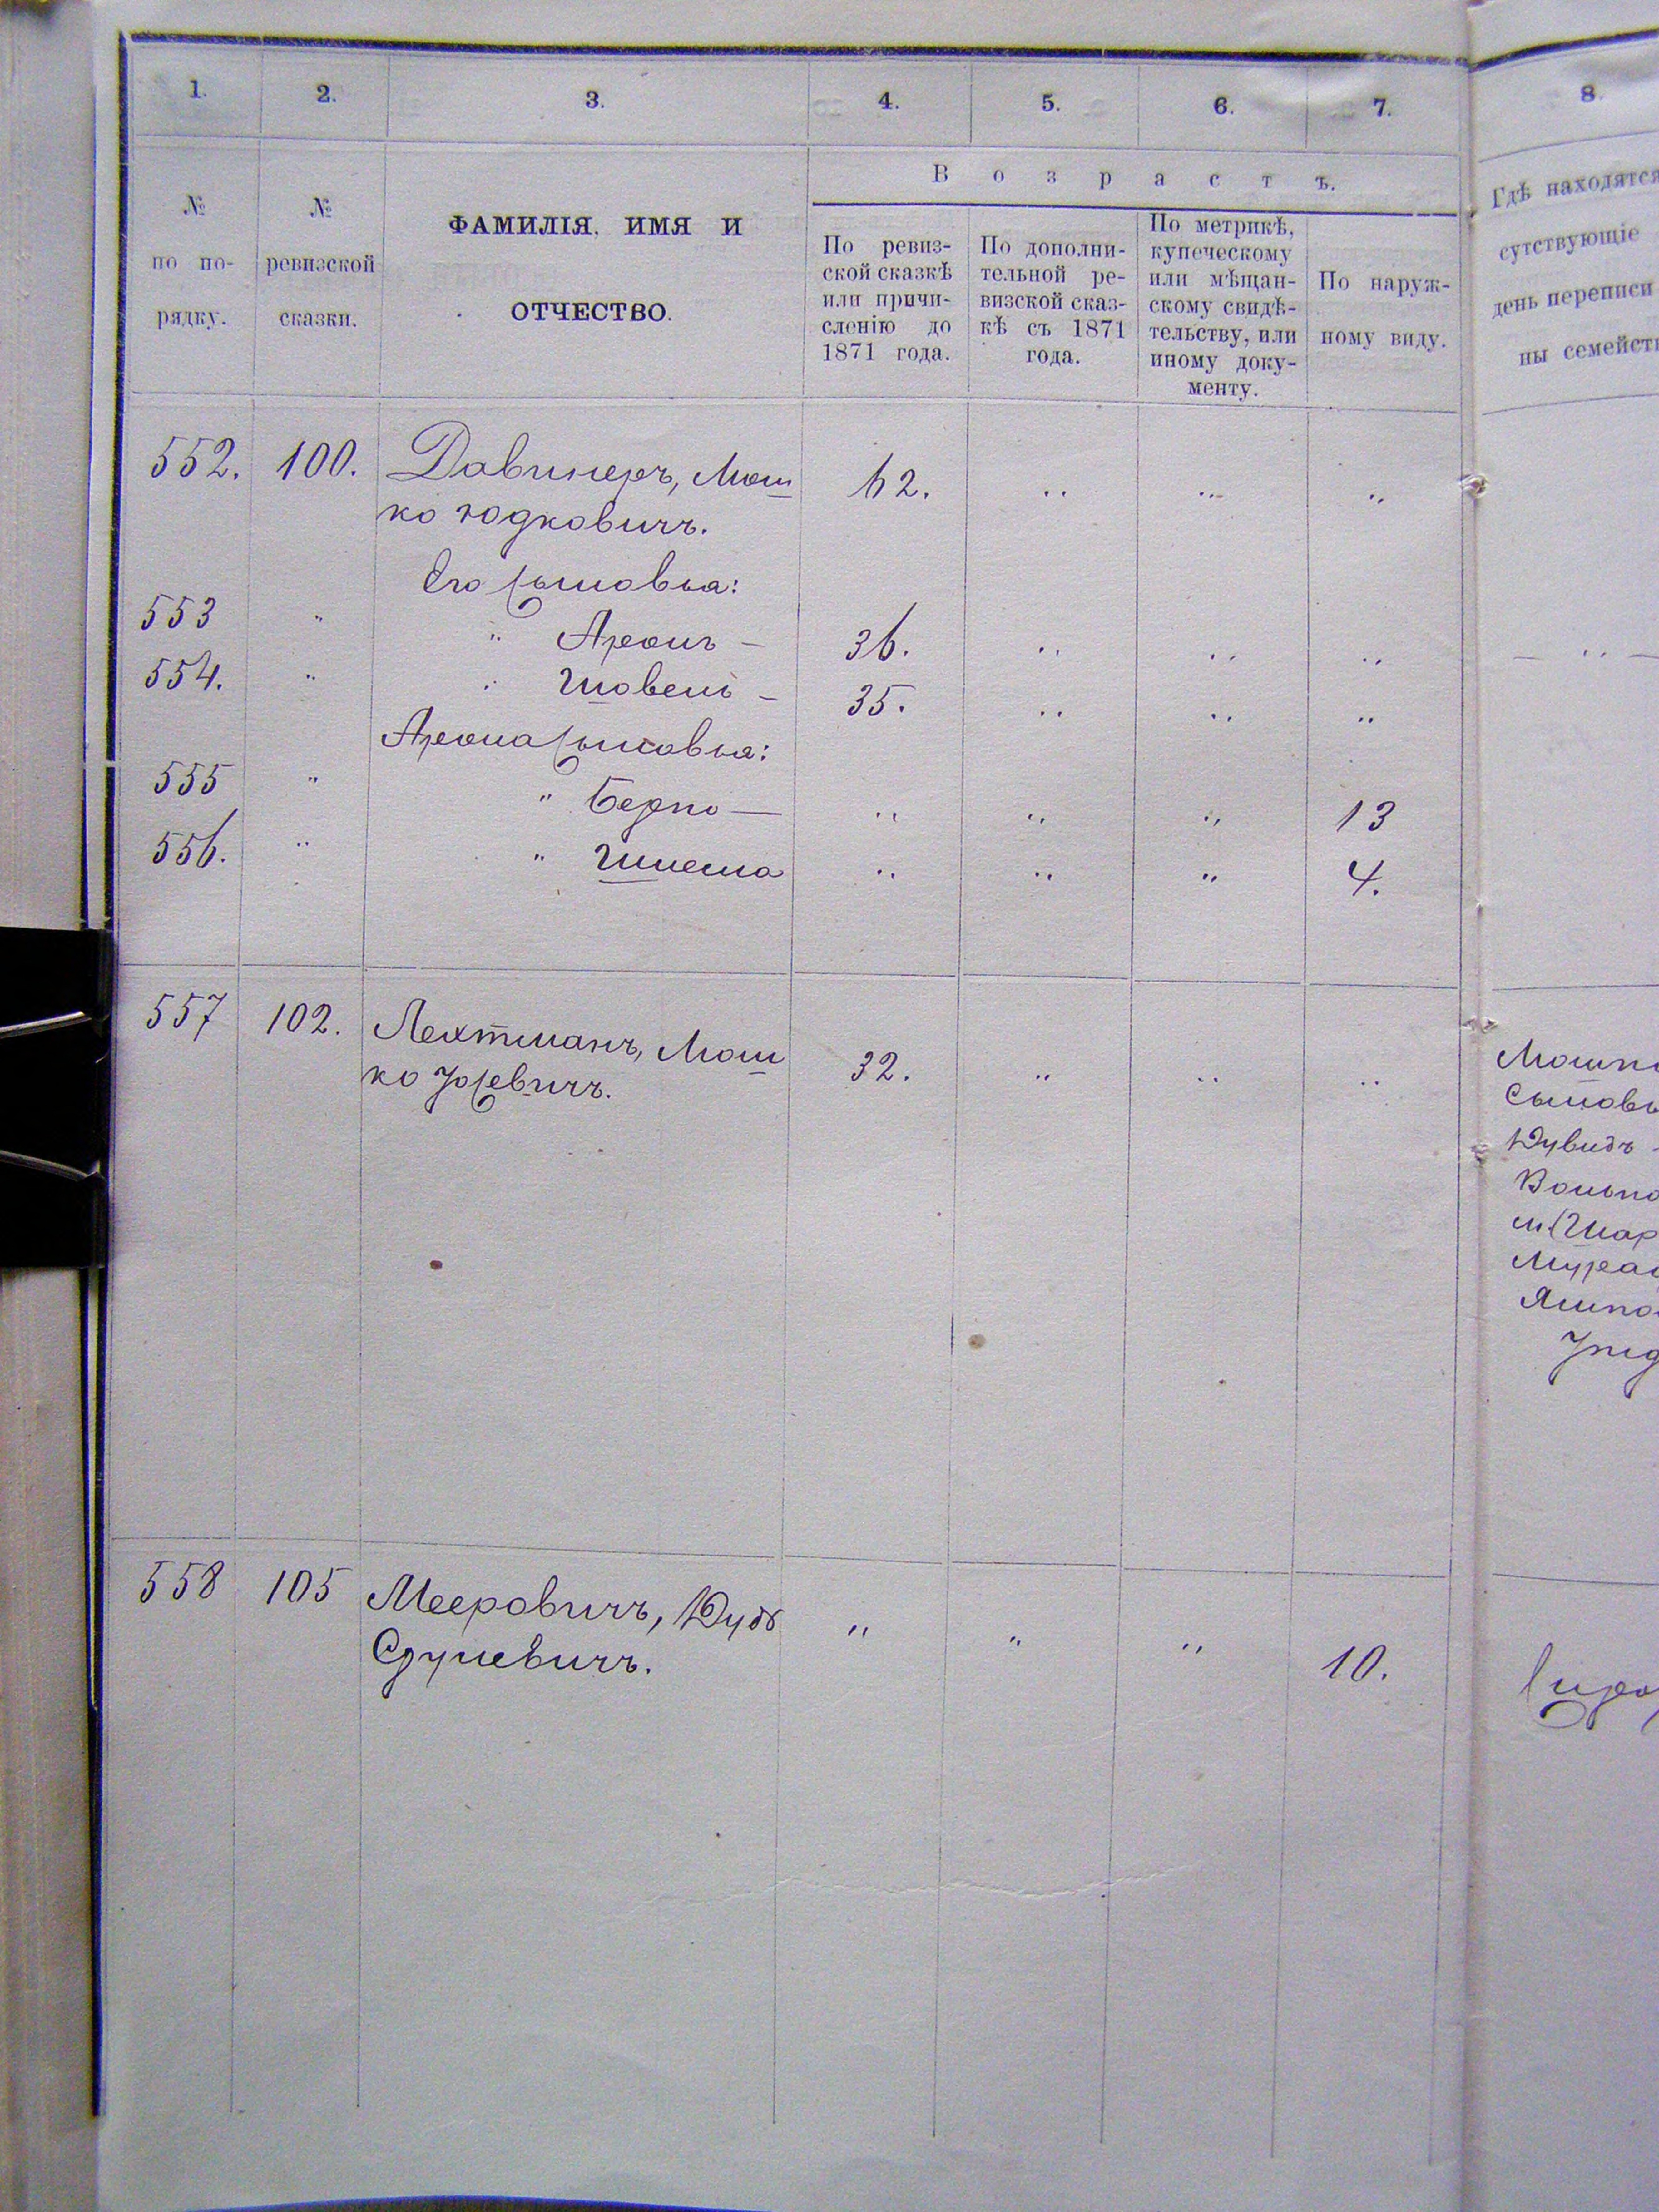 1. 2. 3. 4. 5. 6. 7. 8.
№ по по-рядку.
№ ревизской сказки.
ФАМИЛІЯ, ИМЯ И
ОТЧЕСТВО.
Возрастъ.
По ревиз-
ской сказкѣ
или причи-
сленію до
1871 года.
По дополни-
тельной ре-
визской сказ-
кѣ съ 1871
года.
По метрикѣ,
купеческому
или мѣщан-
скому свидѣ-
тельству, или
иному доку-
менту.
По наруж-
ному виду.
Гдѣ находятся
сутствующіе
день переписи
ны семейст
552. 100. Давинеръ, Мош 62. " " "
ко Юдковичъ.
Его Сыновья:
553 " " Аронъ — 36. " " "
554. " " Шовель — 35. " " "
Арона Сыновья:
555 " " Берко — " " " 13
556. " " Шлема " " " 4.
557 102. Лехтманъ, Мош 32. " " "
ко Іосевичъ.
Мошк
Сыновь
Дувидъ -
Волько
м. Шар
Мурав
Янко
558 105 Мееровичъ, Дудь " " " 10.
Срулевичъ.